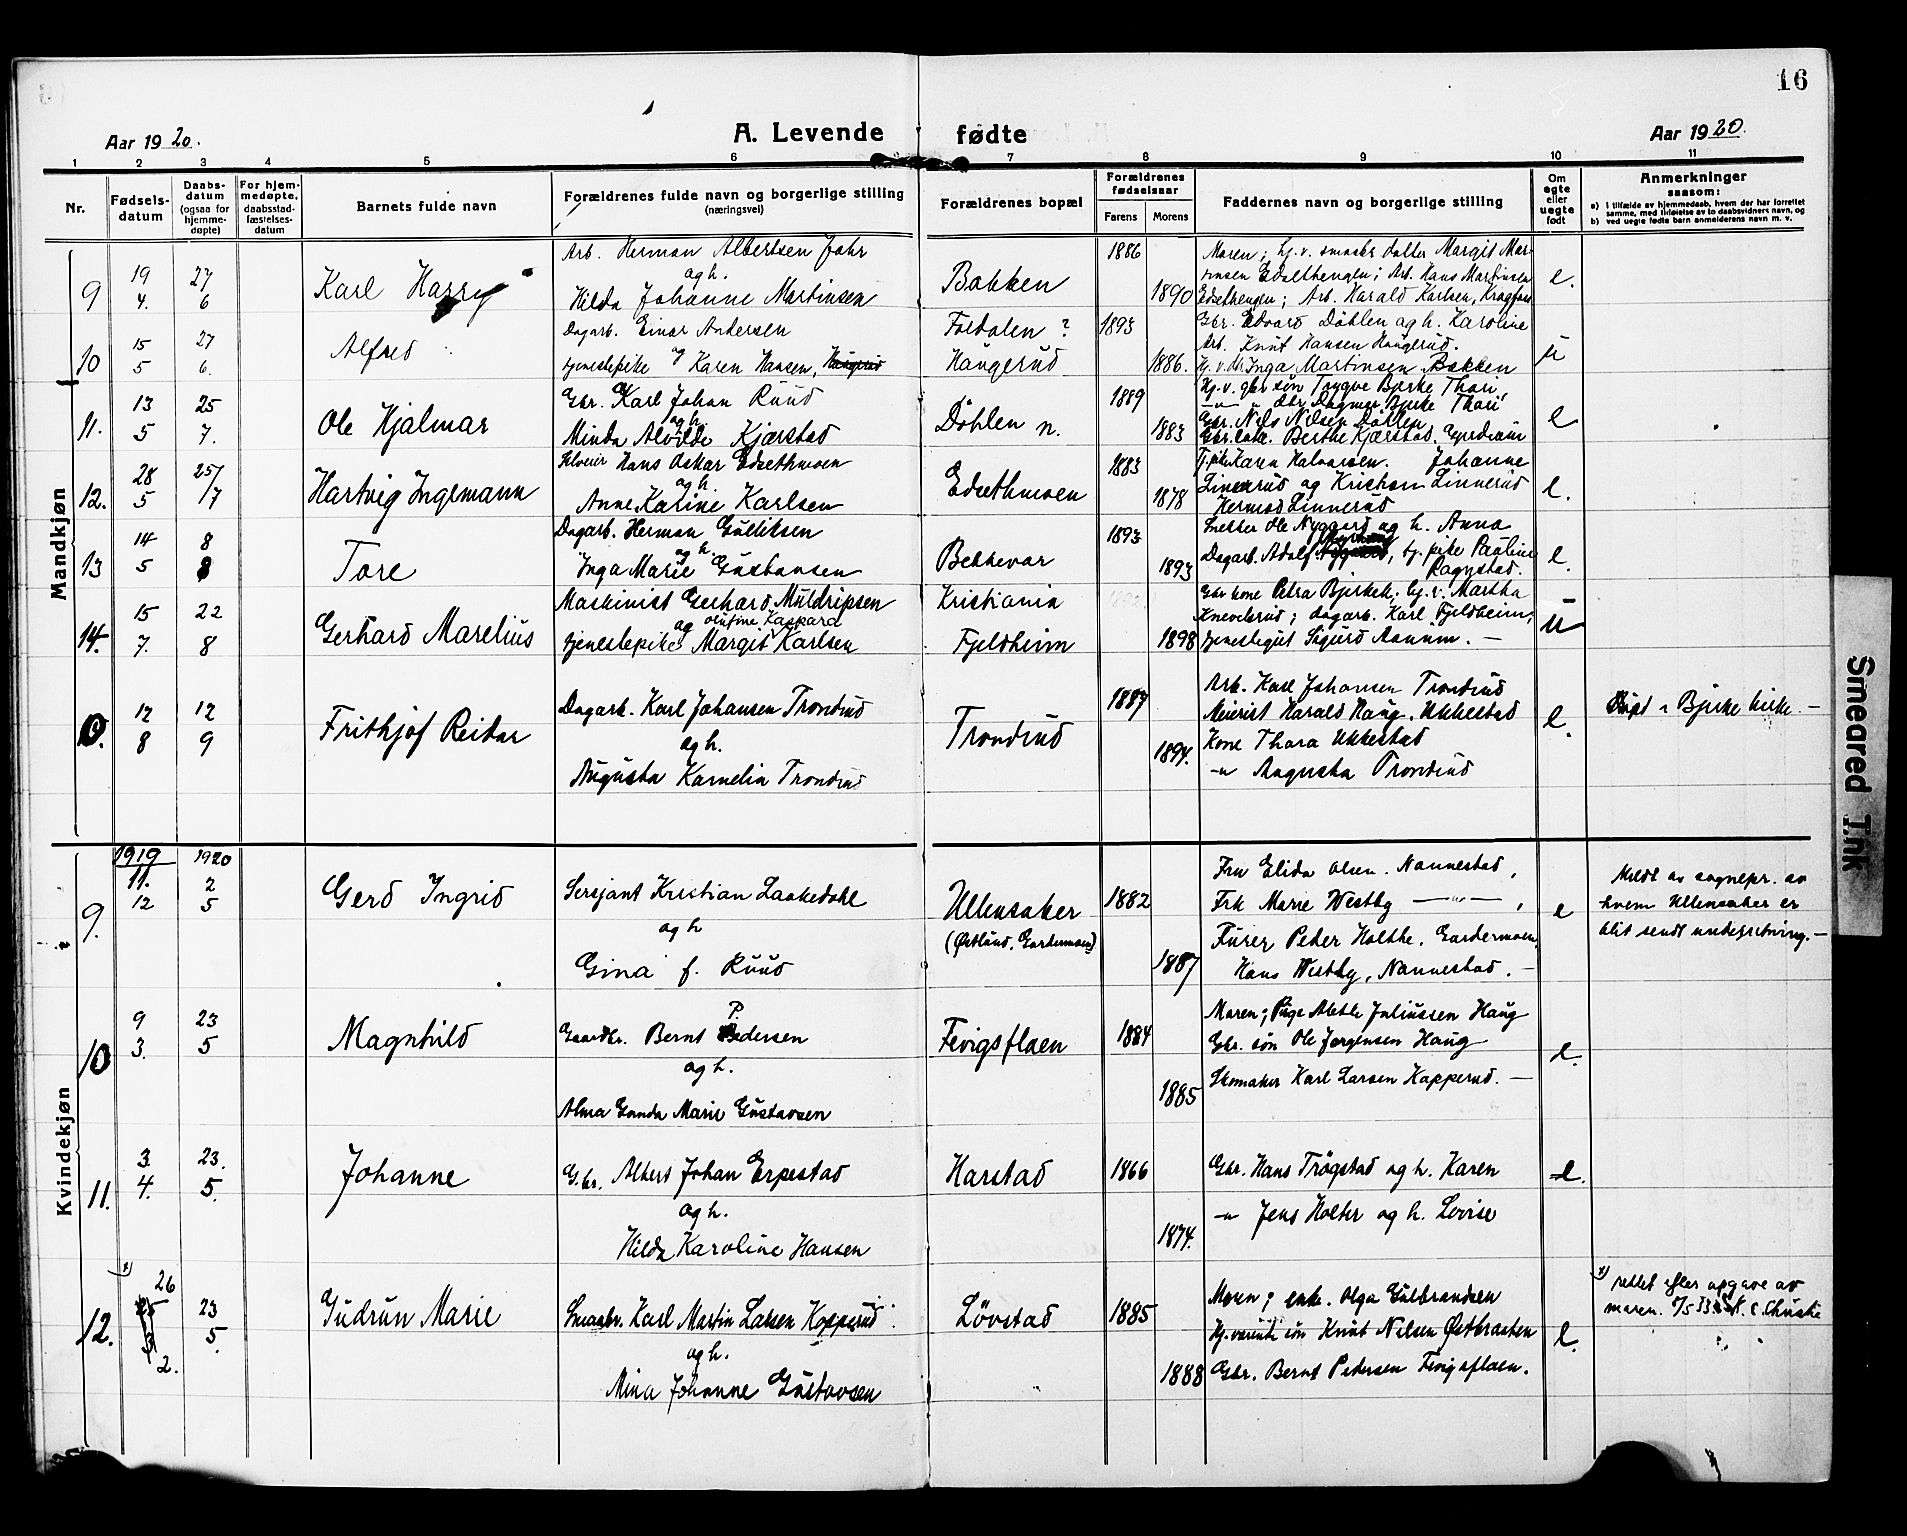 16
Aar 1920.
A. Levende fødte
Aar 1920.
1 2 3 4 5 6 7 8 9 10 11
Nr.
Fødsels-
datum
Daabs-
datum
(ogsaa for
hjemme-
døpte)
For hjem-
medøpte,
daabsstad-
fæstelses-
datum
Barnets fulde navn
Forældrenes fulde navn og borgerlige stilling
(næringsvei)
Forældrenes bopæl
Forældrenes
fødselsaar
Farens
Morens
Faddernes navn og borgerlige stilling
Om
egte
eller
uegte
født
Anmerkninger
saasom:
a) i tilfælde av hjemmedaab, hvem der har forrettet
samme, med tilføielse av to daabsvidners navn, og
b) ved uegte fødte barn anmelderens navn m. v.
Mandkjøn
9
19
4.
27
6
Karl Harry
Arb. Herman Albertsen
og h.
Hilda Johanne Martinsen
Bakken
1886
1890
Moren; hj. v. datter Margit Mar-
tinsen Edsethengen; Arb. Hans Martinsen
Edsethengen; Arb. Harald Karlsen,
e.
10
15
5
27
6.
Alfred
Dagarb. Einar Andersen
og
tjenestepike Karen Hansen, Haugerud
Foldalen ?
Haugerud
1893
1886.
Gbr. Edvard Døhlen og h. Karoline
Arb. Knut Hansen Haugerud.
Inga Martinsen Bakken
u
11.
13
5
25
7.
Ole Hjalmar
Gbr. Karl Johan Ruud
og h.
Minda Alvilde Kjærstad
Døhlen n.
1889
1883
Hj. v. gbr søn Trygve Bjerke Thori,
Dagmar Bjerke Thori
Gbr. Nils Nilsen Døhlen
Berthe Kjærstad.
e
12.
28
5
25/
/7
Hartvig Ingemann
Selveier Hans Oskar Edsethmoen
og h.
Anne Karine Karlsen
Edsethmoen
1883
1878
Karen Halvorsen. Johanne
Linnerud og Kristian Linnerud
Hermod Linnerud
e.
13
14
5
8
8
Tore
Dagarb. Herman Gulliksen
og h.
Inga Marie Gustavsen
Bekkevar
1893
1893
Snekker Ole Nygaard og h. Anna
Dagarb. Adolf Nygaard, tj. pike Pauline
Ragnstad.
e.
14.
15
7.
22
8
Gerhard Marelius
Maskinist Gerhard Muldripsen
og Olufine Kaspara
tjenestepike Margit Karlsen
Kristiania
Fjeldheim
1892.
1898
Gbr kone Petra Bjerkek. hj. v. Martha
Kneverud; dagarb. Karl Fjeldheim;
tjenestegut Sigurd Aannum. —
u
12
8
12
9
Frithjof Reidar
Dagarb. Karl Johansen Trondrud
og h.
Augusta Kornelia Trondrud
Trondrud
1887
1894.
Arb. Karl Johansen Trondrud
Meierist Harald Haug, Ukkestad
Kone Thora Ukkestad
—"— Augusta Trondrud
e.
Døpt i Bjerke kirke. —
Kvindekjøn
1919 1920
9.
11.
12
2
5
Gerd Ingrid
Sersjant Kristian Laakedahl
og h
Gina f. Ruud
Ullensaker
(Østlund, Gardermoen)
1882
1887
Fru Elida Olsen. Nannestad,
Frk Marie Westby —"—,
Furer Peder Holthe. Gardermoen,
Hans Westby, Nannestad. —
e
Meldt av sognepr. av
hvem Ullensaker er
blit sendt underretning. —
10
9
3.
23
5
Magnhild
Gaardbr. Bernt Pedersen
og h.
Alma Gunda Marie Gustavsen
Fevigsflaen
1884
1885
Moren; Pige Alethe Juliussen Haug
Gbr. søn Ole Jørgensen Haug
Skomaker Karl Larsen Kopperud. —
e.
11.
3
4.
23.
5.
Johanne
G.br. Albert Johan Erpestad
og h.
Hilda Karoline Hansen
Harstad
1866
1874.
Gbr. Hans Trøgstad og h. Karen
—"— Jens Holter og h. Lovise
e.
12.
x)
26
25
3
2.
23
5.
Gudrun Marie
Smaabr. Karl Martin Larsen Kopperud
og h.
Mina Johanne Gustavsen
Løvstad
1885
1888
Moren; enke. Olga Gulbrandsen
Hj.værende søn Knut Nilsen Østbraaten
Gbr. Bernt Pedersen Fevigsflaen.
e.
x) rettet efter opgave av
moren.
Smeared Ink